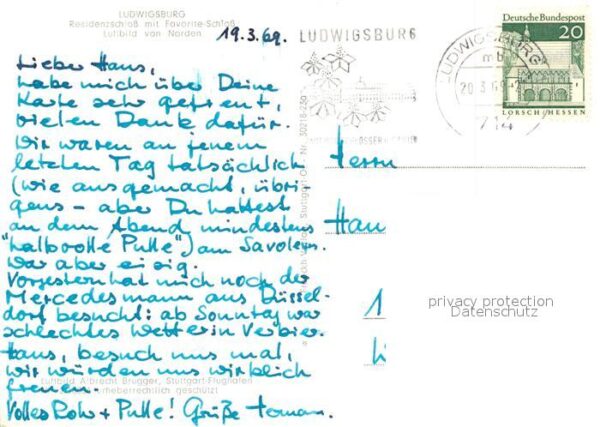 LUDWIGSBURG
Residenzschloß mit Favorite-Schloß
Luftbild von Norden
19.3.69.
Lieber Hans,
habe mich über Deine
Karte sehr gefreut,
vielen Dank dafür.
Wir waren an jenem
letzten Tag tatsächlich
(wie ausgemacht, übri-
gens - aber Du hattest
an dem Abend mindestens
"halbvolle Pulle") am Savoleyres.
War aber eisig.
Vorgestern hat mich noch der
Mercedesmann aus Düssel-
dorf besucht: ab Sonntag war
schlechtes Wetter in Verbier.
Hans, besuch uns mal,
wir würden uns wirklich
freuen.
Volles Rohr + Pulle! Grüße
Luftbild Albrecht Brugger, Stuttgart-Flughafen
urheberrechtlich geschützt
Verlag, Stuttgart Nr. 30218-230
LUDWIGSBURG
LUDWIGSBURG
mb
20.3.69
714
Deutsche Bundespost
20
LORSCH/HESSEN
Herrn
Han
1
privacy protection
Datenschutz